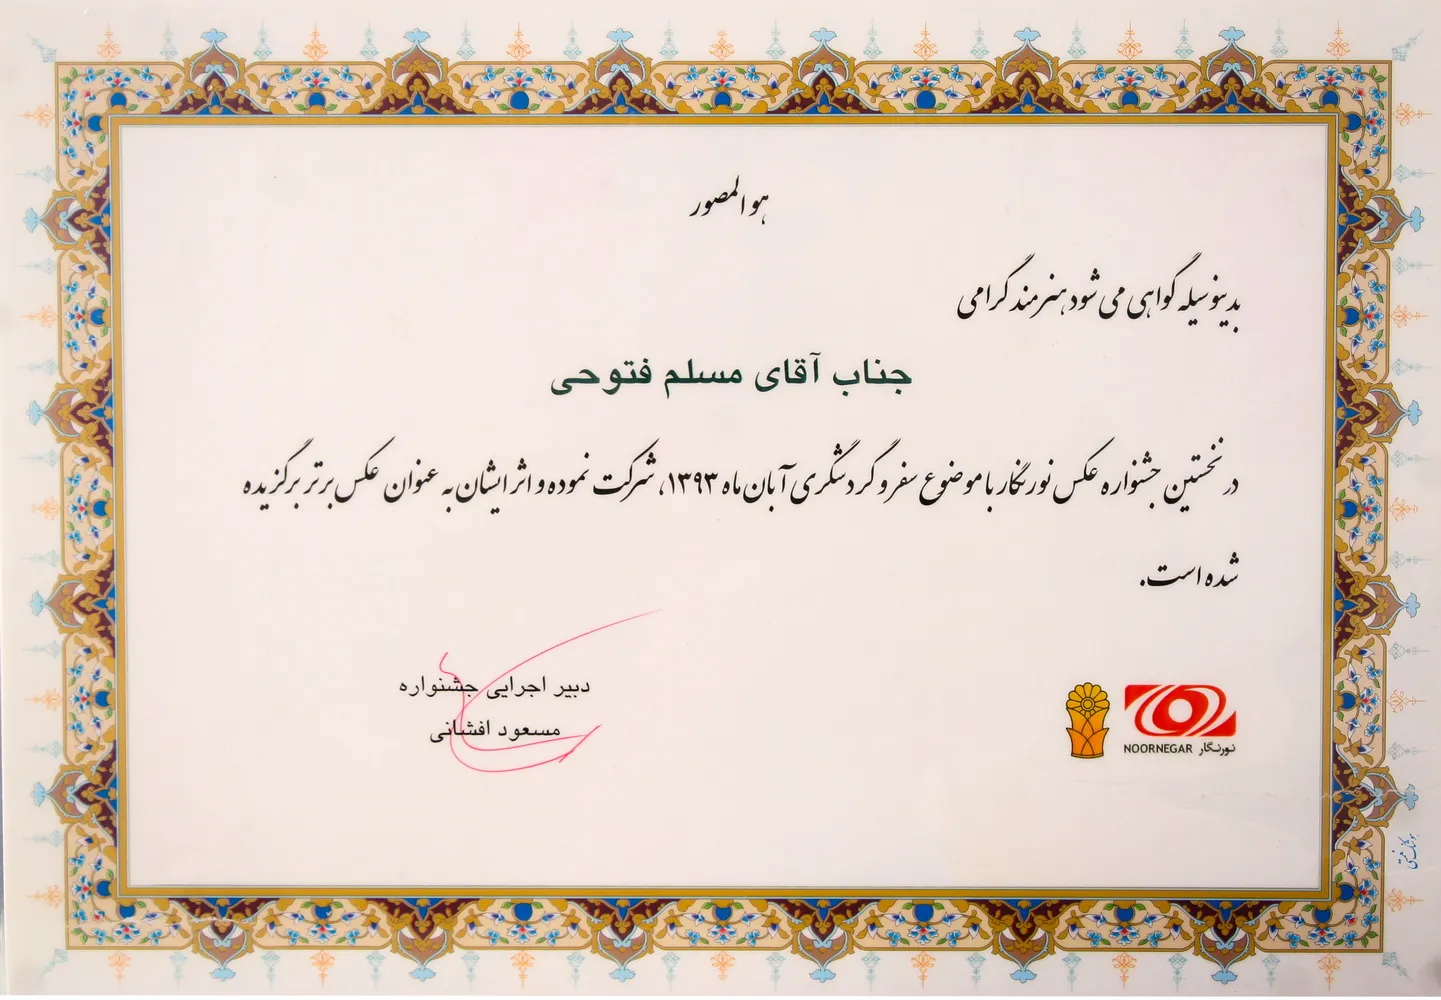 هو المصور
بدینوسیله گواهی می شود هنرمند گرامی
جناب آقای مسلم فتوحی
در نخستین جشنواره عکس نورنگار با موضوع سفر و گردشگری آبان ماه ۱۳۹۳، شرکت نموده و اثر ایشان به عنوان عکس برتر برگزیده
شده است.
دبیر اجرایی جشنواره
مسعود افشانی
NOORNEGAR نورنگار